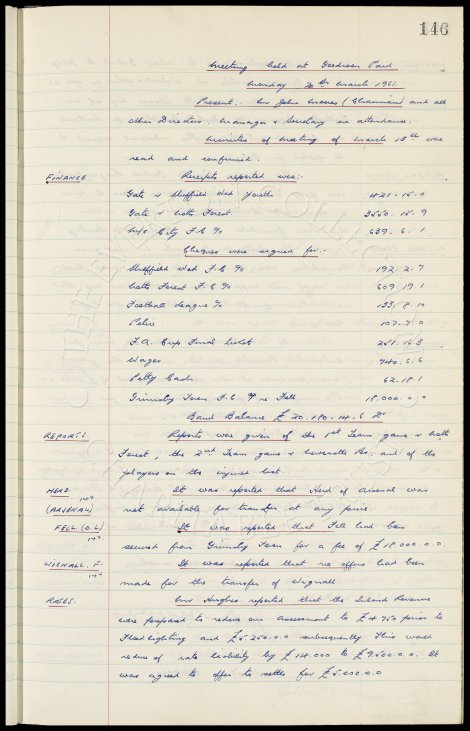 146
Meeting held at Goodison Park
Tuesday March 1961.
Present:- Mr John Moores (Chairman) and all
other Directors. Manager & Secretary in attendance.
Minutes of meeting of March 13th were
read and confirmed.
FINANCE Receipts reported were:-
Gate v Sheffield Wed Youth 421.15.0
Gate v Notts Forest 3550.15.9
M/c City F.C % 639.6.1
Cheques were signed for:-
Sheffield Wed F.C % 192.2.7
Notts Forest F.C % 609.19.1
Football League % 133.8.10
Police 107.7.0
F.A. Cup Final tickets 261.15.3
Wages 740.6.6
Petty Cash 62.18.1
Grimsby Town F.C. re Fell 18,000.0.0
Bank Balance £20.180.14.6 Dr
REPORTS. Reports were given of the 1st Team game v Notts
Forest, the 2nd Team game v Newcastle Res. and of the
players on the injured list.
HERD. It was reported that Herd of Arsenal was
(ARSENAL) not available for transfer at any price.
FELL. (O.L) It was reported that Fell had been
secured from Grimsby Town for a fee of £18,000.0.0
WIGNALL. F. It was reported that no offers had been
made for the transfer of Wignall.
RATES. Mr Hughes reported that the Inland Revenue
were prepared to reduce our assessment to £4950 prior to
Floodlighting and £5.250.0.0 subsequently. This would
reduce rate liability by £14.000 to £9,500.0.0. It
was agreed to offer to settle for £5,000.0.0